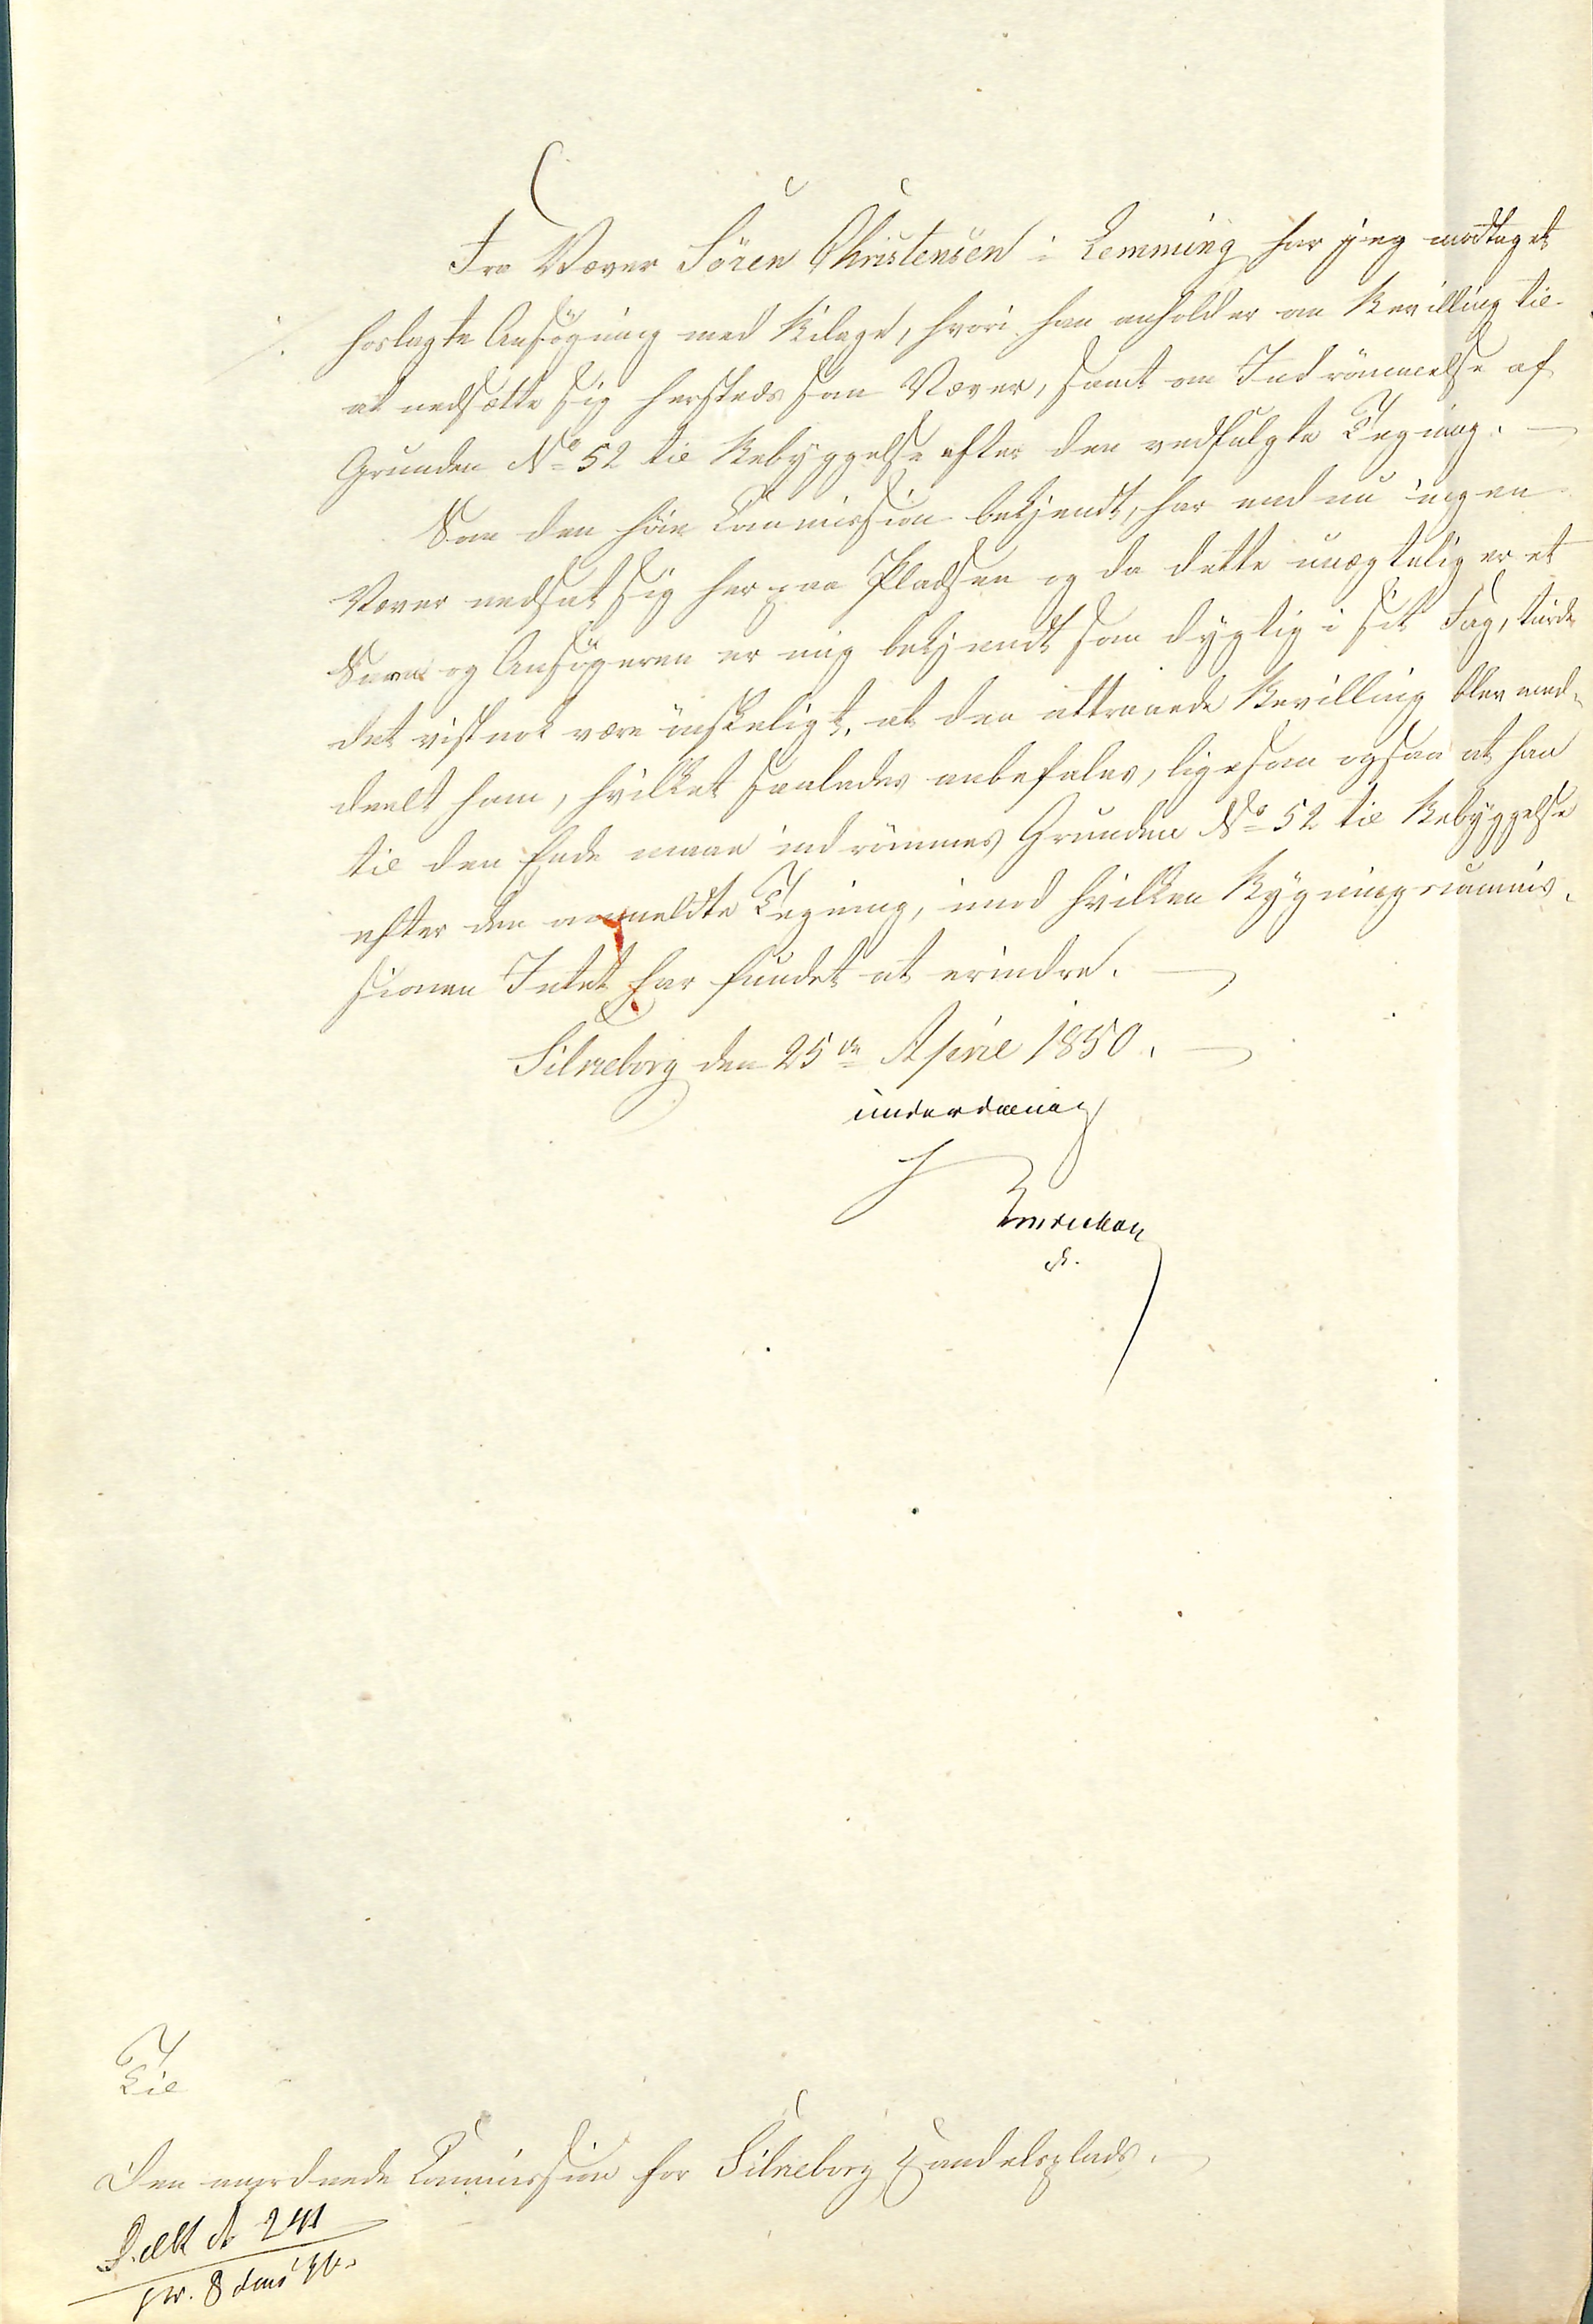 Fra Væver Sören Christensen i Lemming har jeg modtaget
/. hoslagte Ansøgning med Bilage, hvori han anholder om Bevilling til
at nedsætte sig hersteds som Væver, samt om Indrömmelse af
Grunden No 52 til Bebyggelse efter den vedfulgte Tegning. —
Som den höie Commission bekjendt, har endnu ingen
Væver nedsat sig her paa Pladsen og da dette unægtelig er et
Savn og Ansøgeren er mig bekjendt som dygtig i sit Fag, turde
det vistnok være ønskeligt, at den attraaede Bevilling blev med-
deelt ham, hvilket saaledes anbefales, ligesom ogsaa at han
til den Ende maae indrömmes Grunden No 52 til Bebyggelse
efter den anmeldte Tegning, imod hvilken Bygningscommis-
sionen Intet har fundet at erindre. —
Silkeborg den 25de April 1850. —
underdanig
Drechsel
Til
Den anordnede Commission for Silkeborg Handelsplads.
241